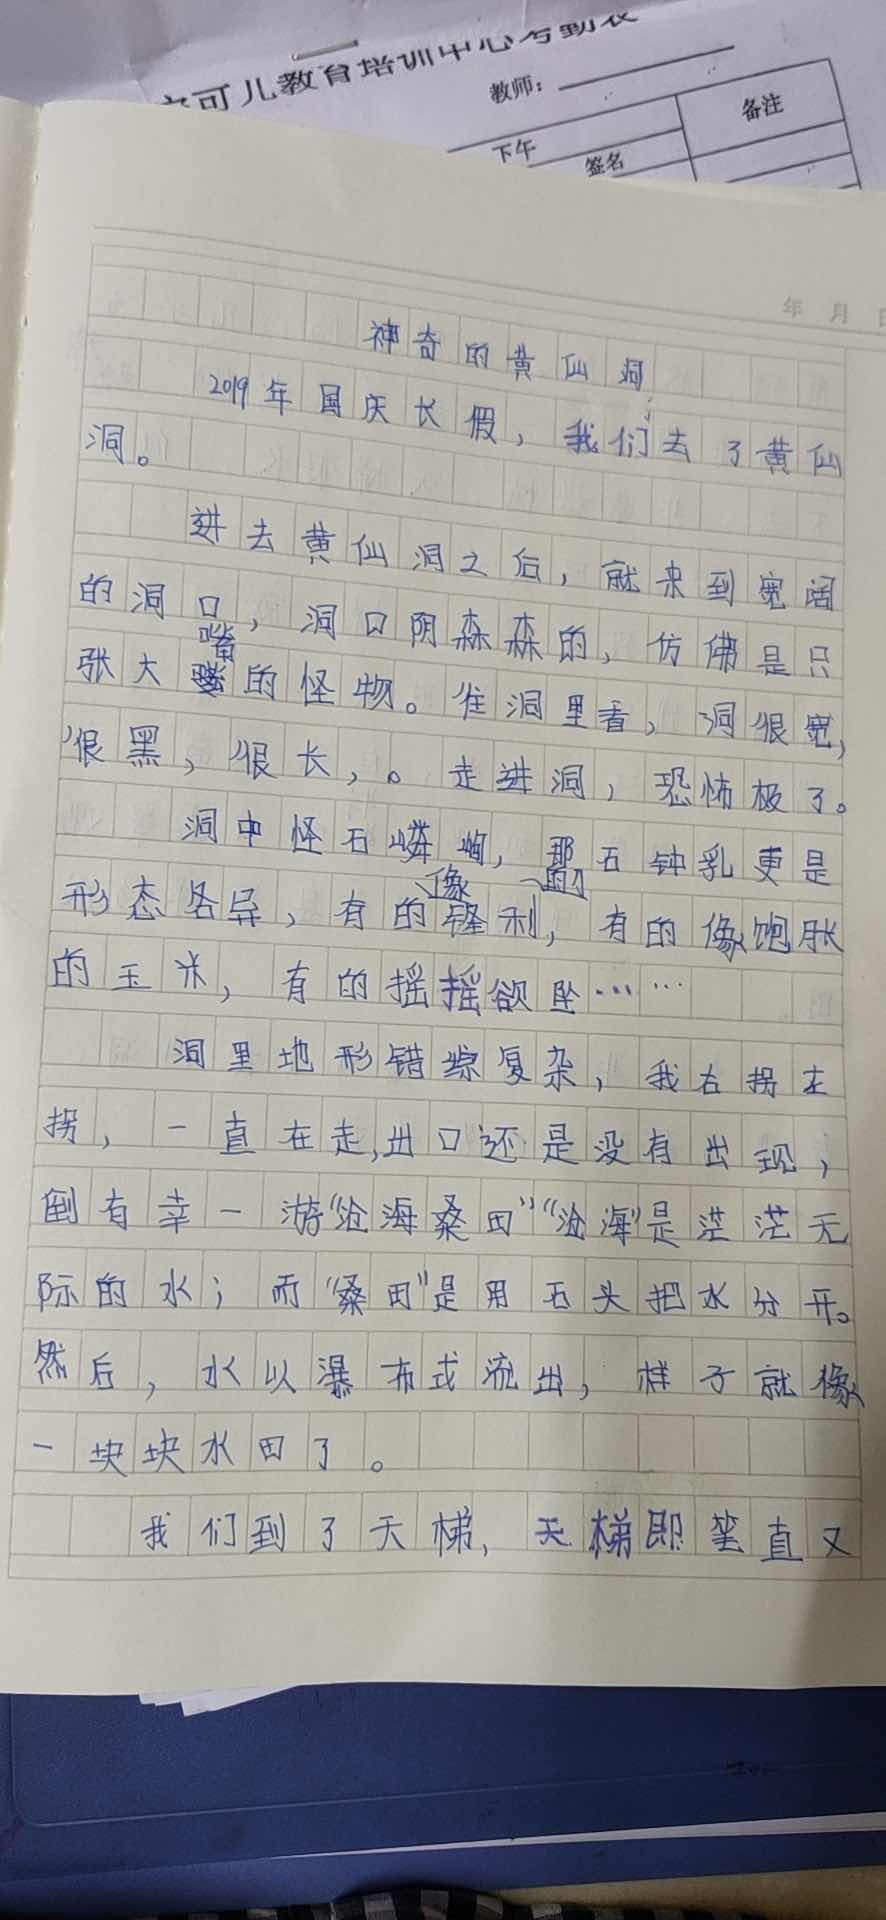 可儿教育培训中心考勤表
教师：
备注
下午
签名
年 月 日
神奇的黄仙洞
2019年国庆长假，我们去了黄仙
洞。
进去黄仙洞之后，就来到宽阔
的洞口，洞口阴森森的，仿佛是只
张大嘴的怪物。往洞里看，洞很宽，
很黑，很长，。走进洞，恐怖极了。
洞中怪石嶙峋，那石钟乳更是
形态各异，有的像锋利的，有的像饱胀
的玉米，有的摇摇欲坠……
洞里地形错综复杂，我右拐左
拐，一直在走，出口还是没有出现，
倒有幸一游“沧海桑田”“沧海”是茫茫无
际的水；而“桑田”是用石头把水分开。
然后，水以瀑布式流出，样子就像
一块块水田了。
我们到了天梯，天梯即笔直又